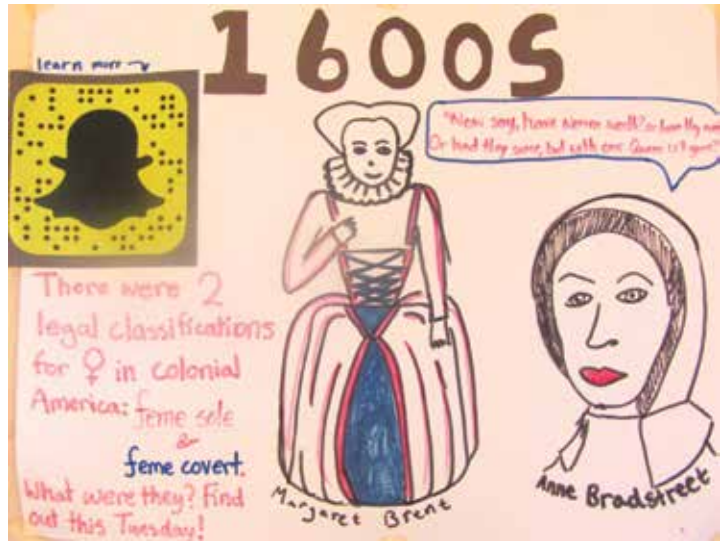 1600S
learn more
"Now say, have women worth? or have they none?
Or had they some, but with our Queen is't gone?"
There were 2
legal classifications
for ♀ in colonial
America: feme sole
&
feme covert.
What were they? Find
out this Tuesday!
Margaret Brent
Anne Bradstreet